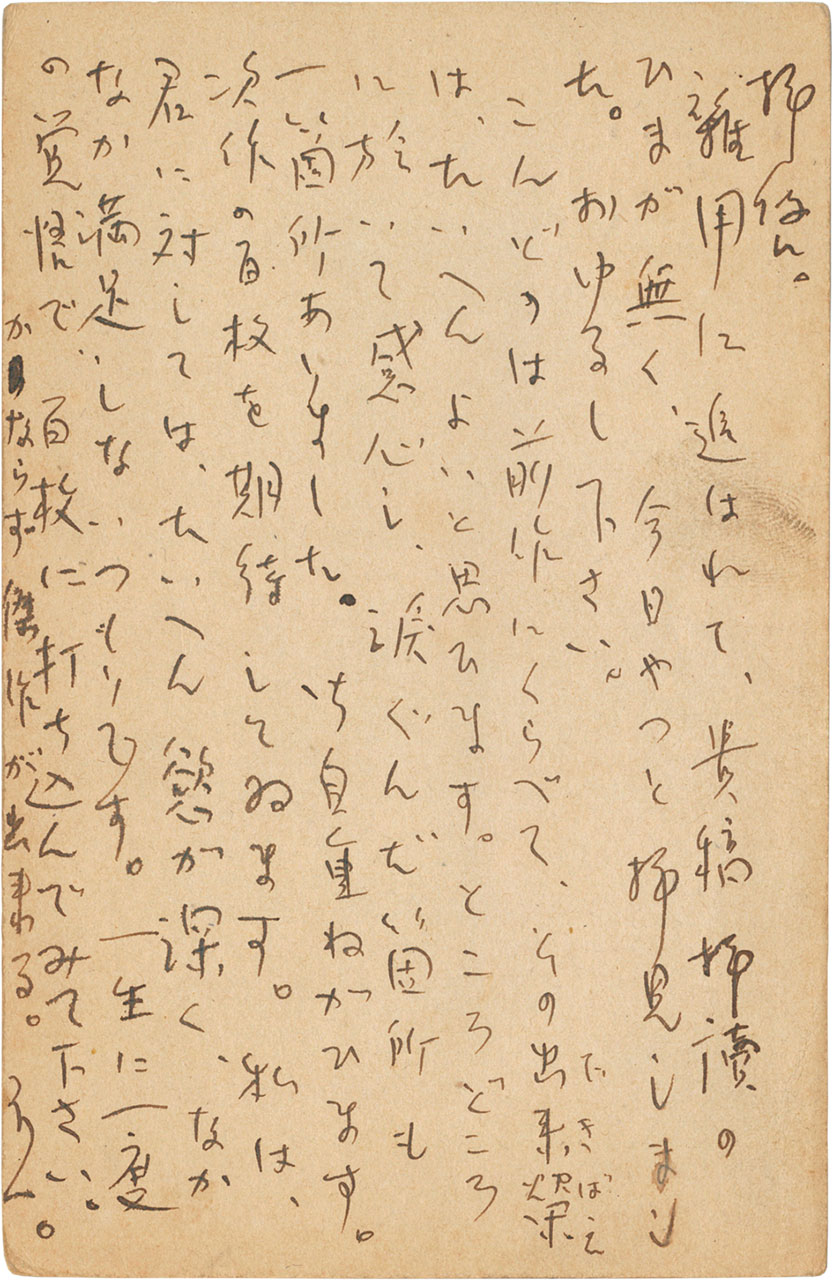 拝復。
雑用に追はれて、貴稿拝読の
ひまが無く、今日やつと拝見しまし
た。おゆるし下さい。
こんどのは前作にくらべて、その出来栄
できばえ
は、たいへんよいと思ひます。ところどころ
に於いて感心し、涙ぐんだ箇所も
一箇所ありました。御自重ねがひます。
次作の百枚を期待してゐます。私は、
君に対しては、たいへん慾が深く、なか
なか満足しないつもりです。一生に一度
の覚悟で、百枚に打ち込んでみて下さい。
かならず傑作が出来る。